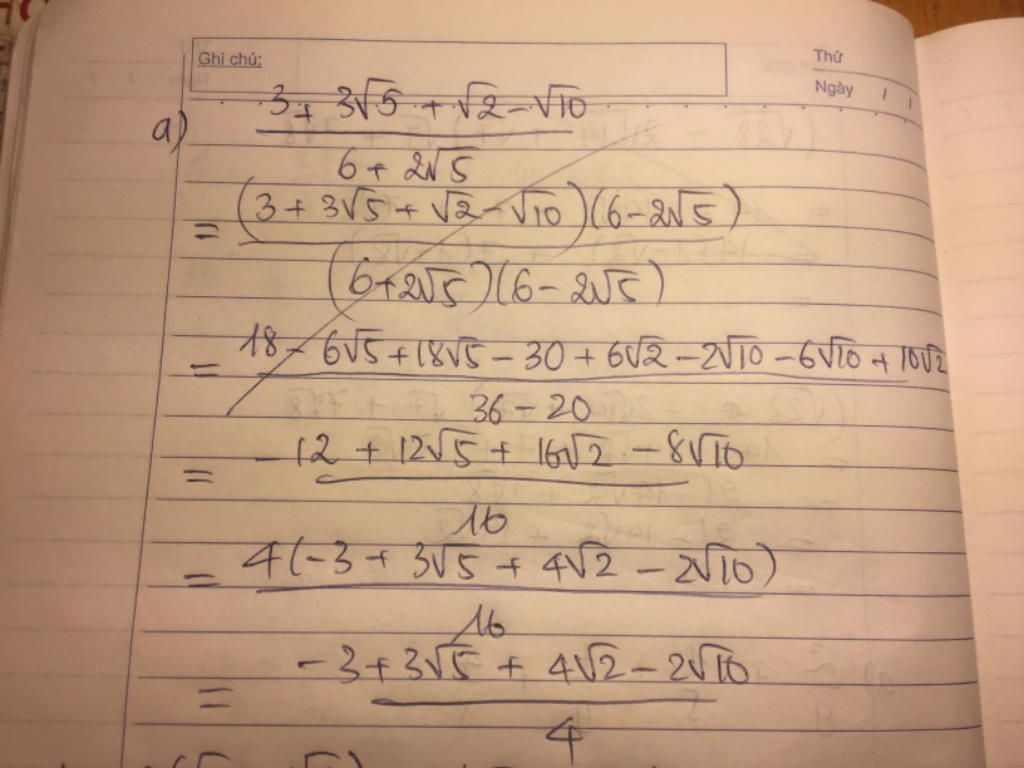 Ghi chú:
Thứ
Ngày / /
a) 3 + 3√5 + √2 - √10
6 + 2√5
= (3 + 3√5 + √2 - √10)(6 - 2√5)
(6 + 2√5)(6 - 2√5)
= 18 - 6√5 + 18√5 - 30 + 6√2 - 2√10 - 6√10 + 10√2
36 - 20
= -12 + 12√5 + 16√2 - 8√10
16
= 4(-3 + 3√5 + 4√2 - 2√10)
16
= -3 + 3√5 + 4√2 - 2√10
4